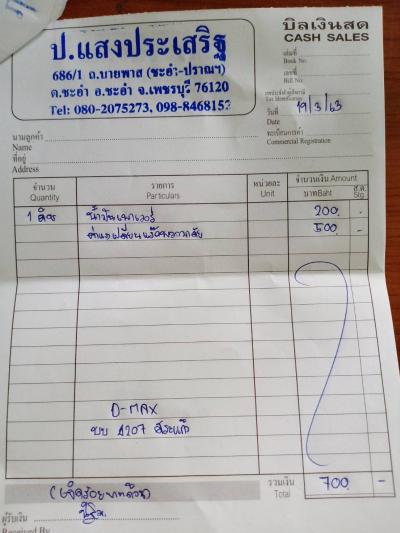 ป.แสงประเสริฐ
686/1 ถ.บายพาส (ชะอำ-ปราณฯ)
ต.ชะอำ อ.ชะอำ จ.เพชรบุรี 76120
Tel: 080-2075273, 098-8468152
บิลเงินสด
CASH SALES
เล่มที่
Book No.
เลขที่
Bill No.
เลขประจำตัวผู้เสียภาษี
Tax Identification
วันที่ 19/3/63
Date
ทะเบียนการค้า
Commercial Registration
นามลูกค้า
Name
ที่อยู่
Address
จำนวน รายการ หน่วยละ จำนวนเงิน Amount
Quantity Particulars Unit บาทBaht ส.ต. Stg
1 ลิตร น้ำมันเพาเวอร์ 200 -
500 -
D-MAX
4207 สระแก้ว
รวมเงิน 700 -
Total
(เจ็ดร้อยบาทถ้วน)
ผู้รับเงิน
Received By